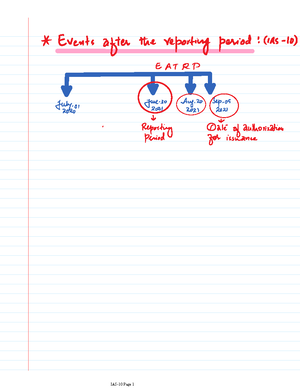 * Events after the reporting period : (IAS-10)
E A T R P
July.01
2020
June.30
2021
Aug.20
2021
Sep.05
2021
Reporting
Period
Date of authorisation
for issuance
IAS-10 Page 1